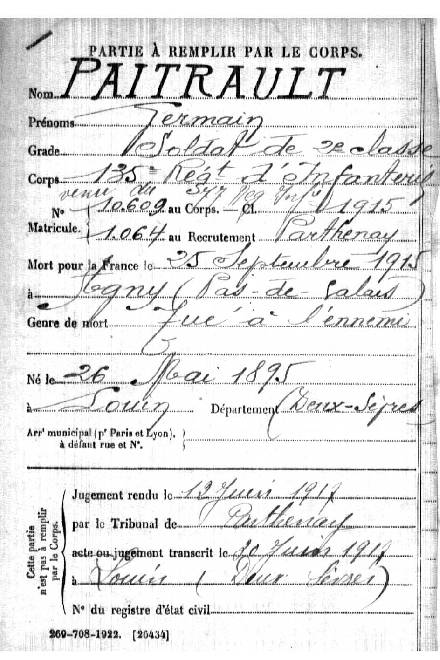 PARTIE À REMPLIR PAR LE CORPS.
Nom PAITRAULT
Prénoms Germain
Grade Soldat de 2e classe
Corps 135e Régt d'Infanterie
venu du 
Nº 10.609 au Corps. — Cl. 1915
Matricule. 1.064 au Recrutement Parthenay
Mort pour la France le 25 Septembre 1915
à Agny (Pas-de-Calais)
Genre de mort Tué à l'ennemi
Né le 26 Mai 1895
à Louin Département (Deux-Sèvres
Arrt municipal (pr Paris et Lyon),
à défaut rue et Nº.
Cette partie
n'est pas à remplir
par le Corps.
Jugement rendu le 12 Juin 1917
par le Tribunal de Parthenay
acte ou jugement transcrit le 30 Juin 1917
à Louin (Deux Sèvres)
Nº du registre d'état civil
269-708-1922. [26434]